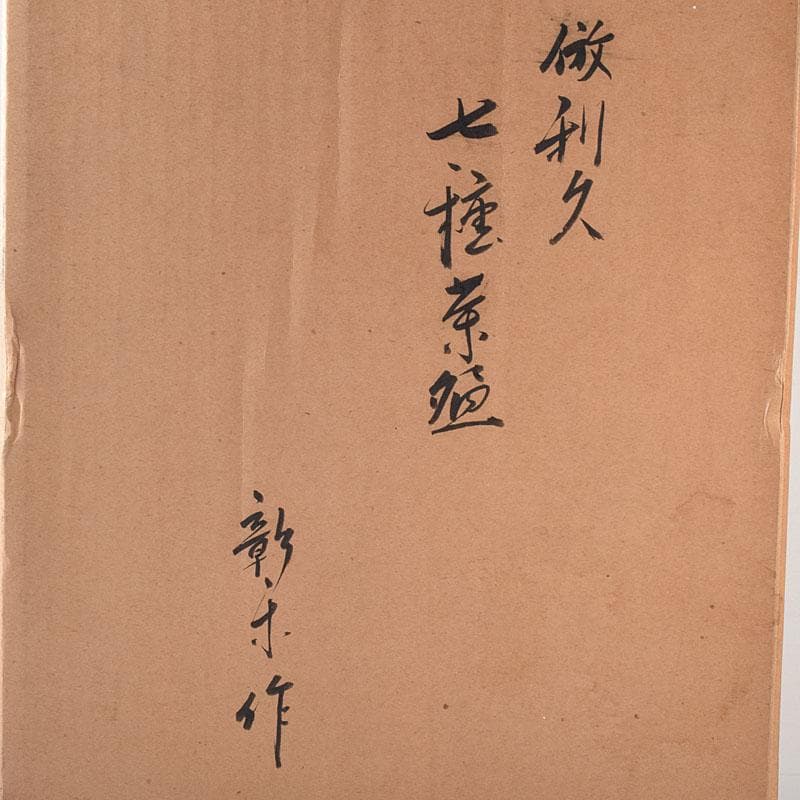 倣利久
七種茶盌
彰作